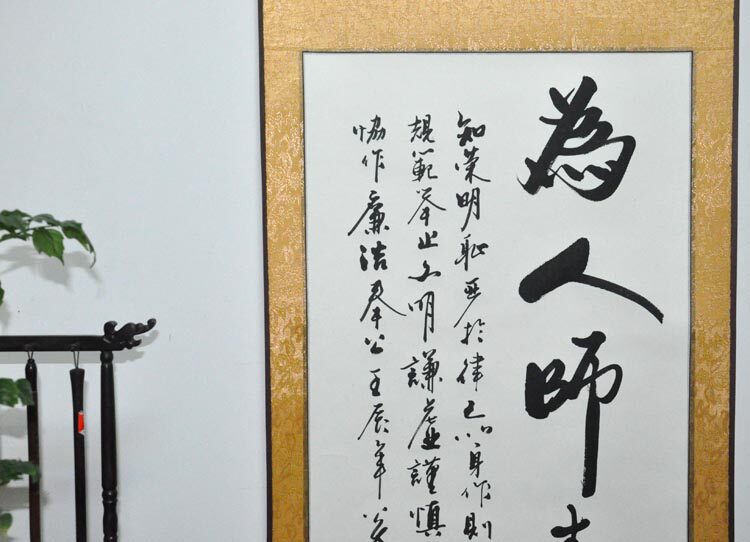 為人師
知榮明恥严於律己以身作則
規範举止文明謙虚謹慎
恊作廉洁奉公壬辰年